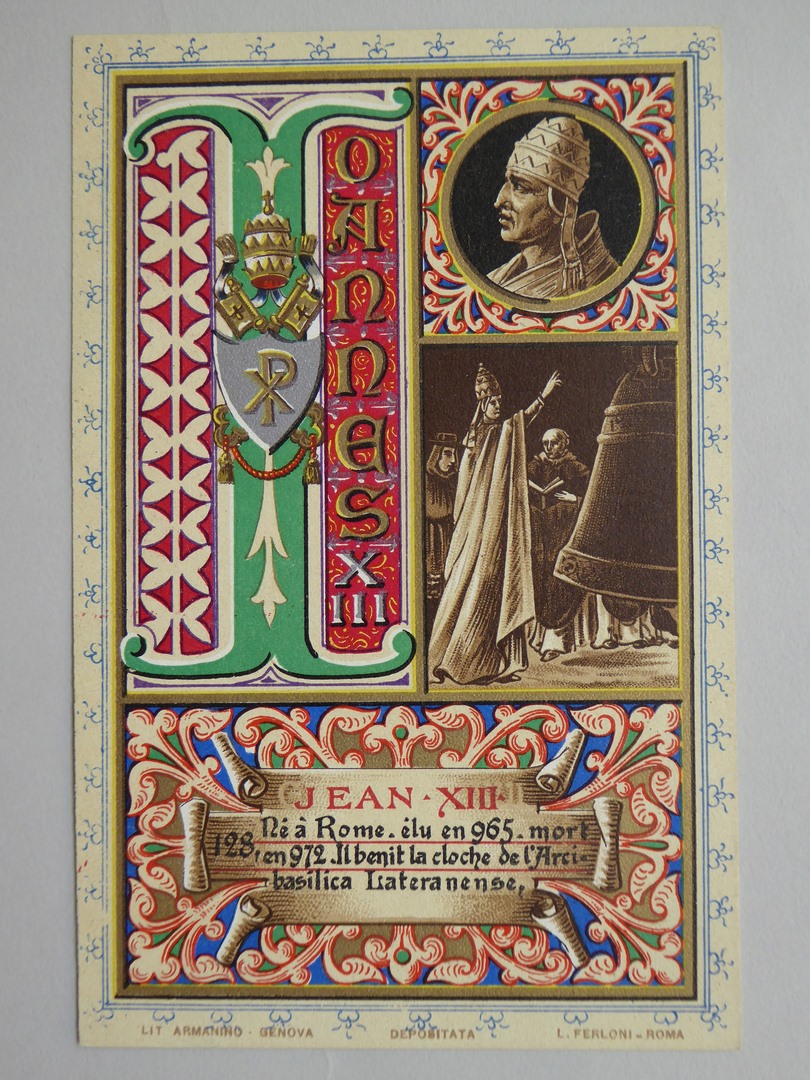 IOANNES XIII
JEAN · XIII ·
128, Né à Rome. élu en 965. mort
en 972. Il benit la cloche de l'Arci-
basilica Lateranense,
LIT ARMANINO - GENOVA
DEPOSITATA
L. FERLONI - ROMA